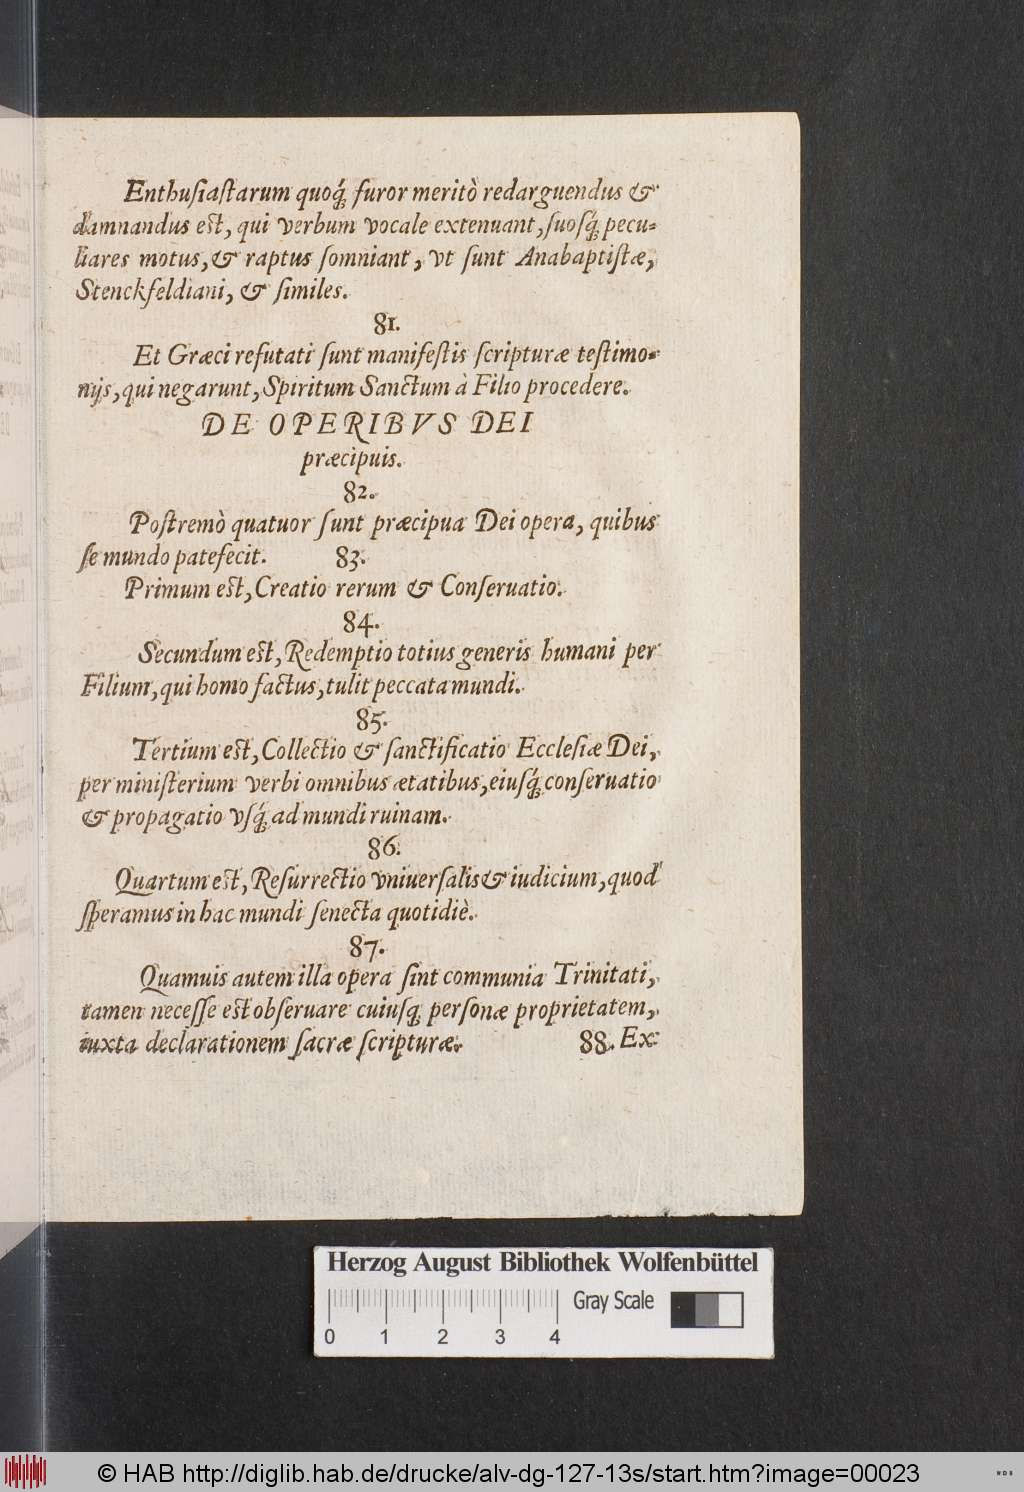 Enthuſiaſtarum quoq́ꝫ furor meritò redarguendus &
damnandus est, qui verbum vocale extenuant, ſuoſq́ꝫ pecu-
liares motus, & raptus ſomniant, vt ſunt Anabaptiſtæ,
Stenckfeldiani, & ſimiles.
81.
Et Græci refutati ſunt manifeſtis ſcripturæ teſtimo-
nijs, qui negarunt, Spiritum Sanctum à Filio procedere.
DE OPERIBVS DEI
præcipuis.
82.
Poſtremò quatuor ſunt præcipua Dei opera, quibus
ſe mundo patefecit. 83.
Primum est, Creatio rerum & Conſeruatio.
84.
Secundum est, Redemptio totius generis humani per
Filium, qui homo factus, tulit peccata mundi.
85.
Tertium est, Collectio & ſanctificatio Eccleſiæ Dei,
per miniſterium verbi omnibus ætatibus, eiuſq́ꝫ conſeruatio
& propagatio vſq́ꝫ ad mundi ruinam.
86.
Quartum est, Reſurrectio vniuerſalis & iudicium, quod
ſperamus in hac mundi ſenecta quotidiè.
87.
Quamuis autem illa opera ſint communia Trinitati,
tamen neceſſe est obſeruare cuiuſqꝫ perſonæ proprietatem,
iuxta declarationem ſacræ ſcripturæ. 88. Ex
Herzog August Bibliothek Wolfenbüttel
Gray Scale
0 1 2 3 4
© HAB http://diglib.hab.de/drucke/alv-dg-127-13s/start.htm?image=00023